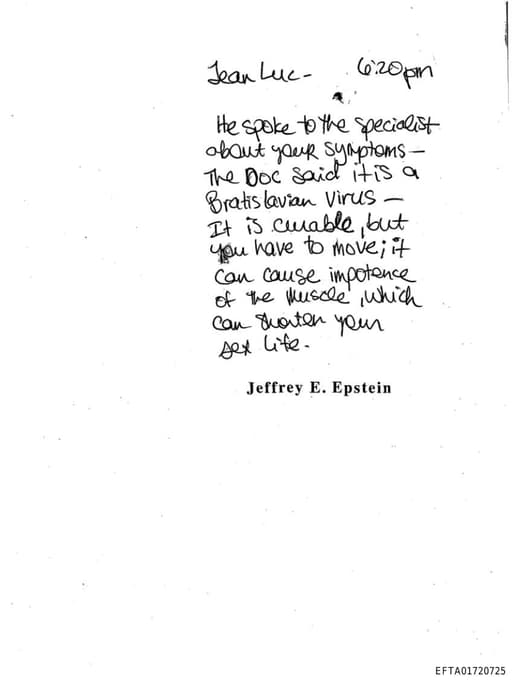 Jean Luc - 6:20pm
He spoke to the specialist
about your symptoms -
The Doc said it is a
Bratislavian Virus -
It is curable, but
you have to move; it
can cause impotence
of the muscle, which
can shorten your
sex life.
Jeffrey E. Epstein
EFTA01720725